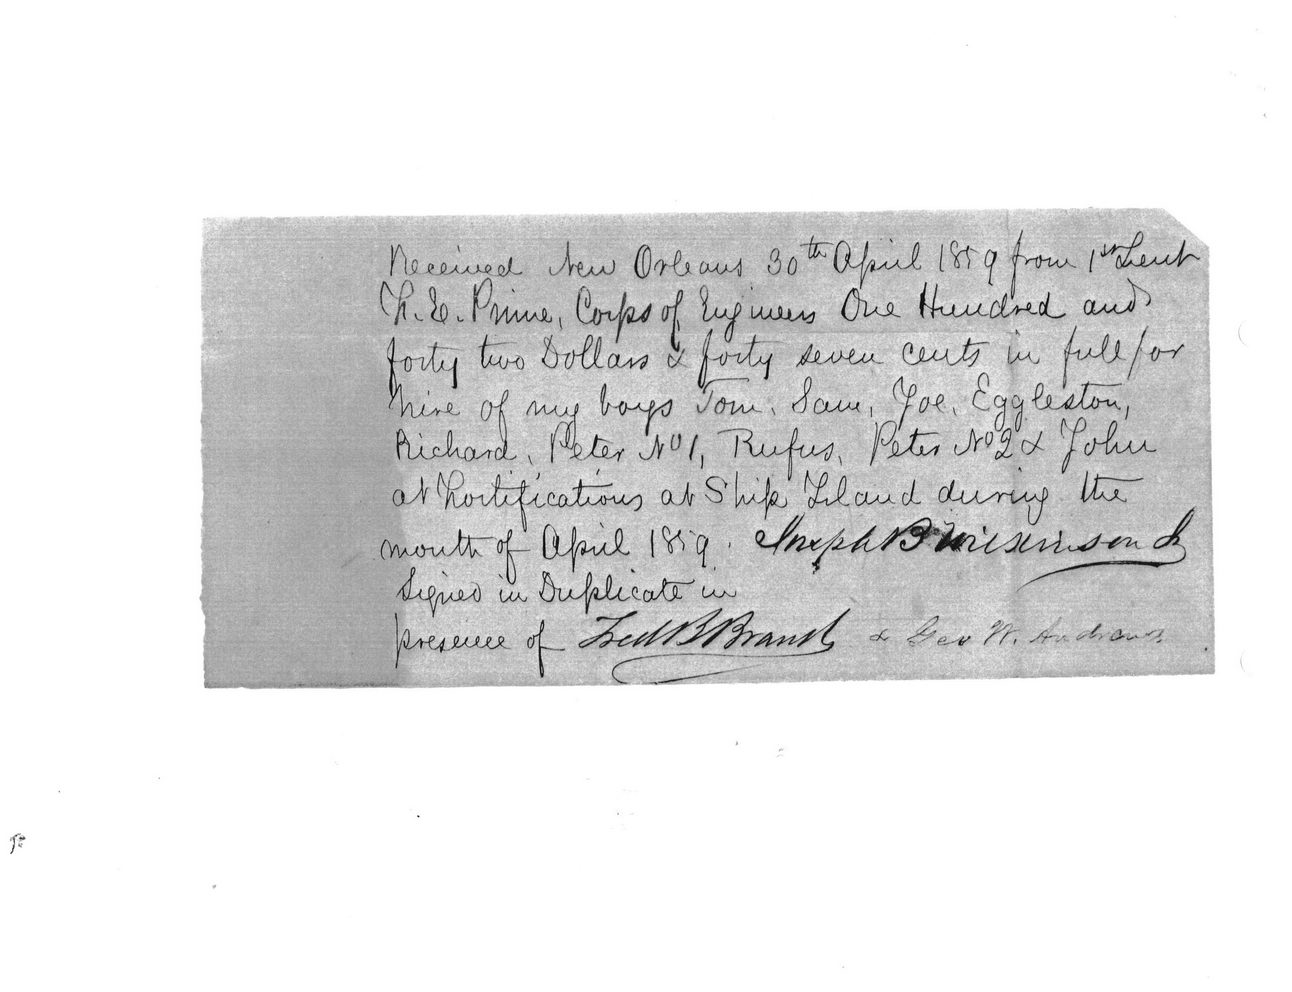 Received New Orleans 30th April 1859 from 1st Lieut
F. E. Prime, Corps of Engineers One Hundred and
forty two Dollars & forty seven cents in full for
hire of my boys Tom, Sam, Joe, Eggleston,
Richard, Peter No 1, Rufus, Peter No 2 & John
at Fortifications at Ship Island during the
month of April 1859. Joseph B Wilkinson Jr
Signed in Duplicate in
presence of Fred B Brand & Geo W. Andrews